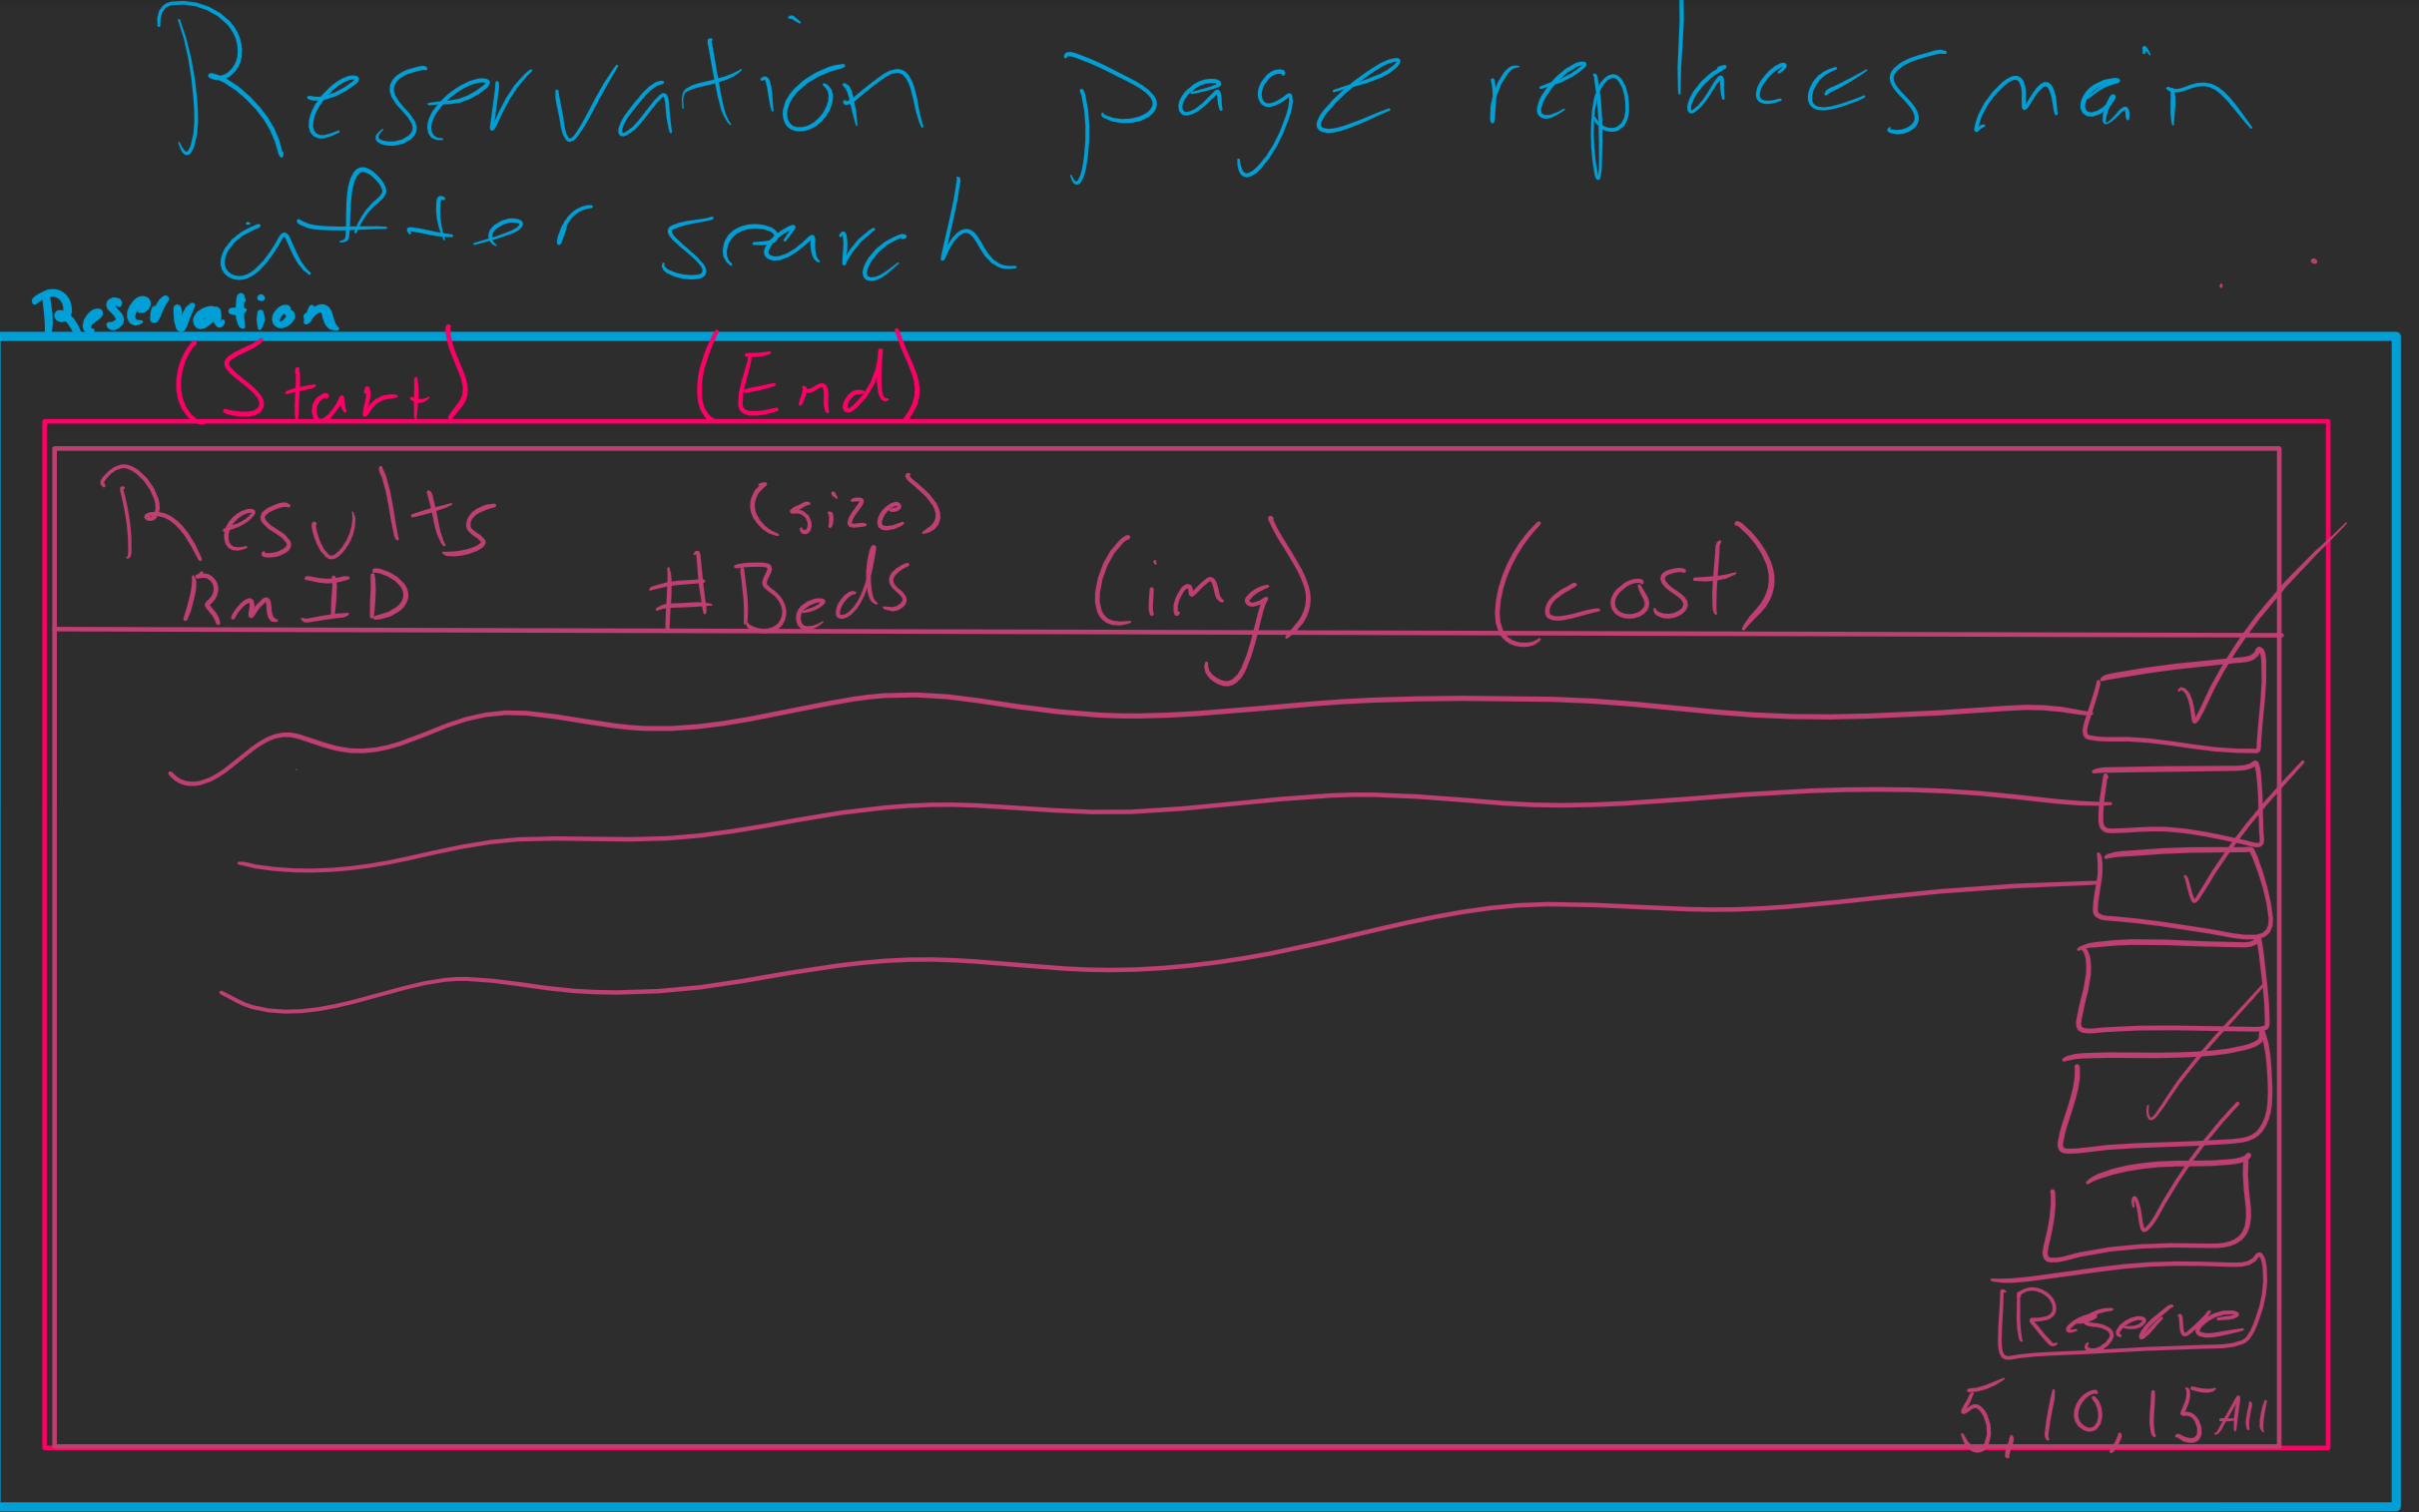 Reservation page replaces main
after search
Reservation
(Start) (End)
Results (size)
Rm ID #Beds (img) (cost)
Reserve
5, 10, 15 All